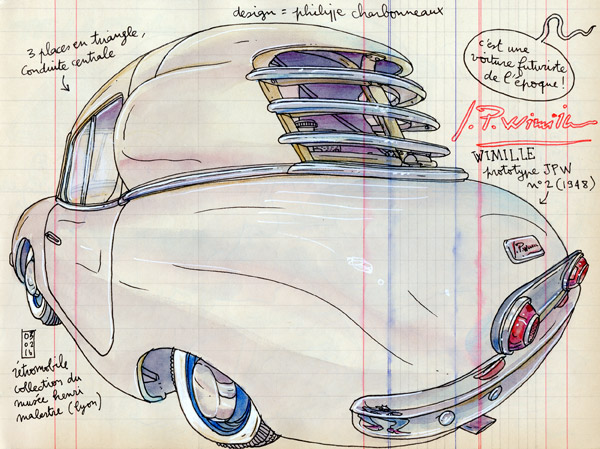 design = philippe charbonneaux
3 places en triangle,
conduite centrale
c'est une
voiture futuriste
de l'époque!
J.P. Wimille
WIMILLE
prototype JPW
n°2 (1948)
J.P. Wimille
03
02
18
rétromobile
collection du
musée henri
malartre (lyon)